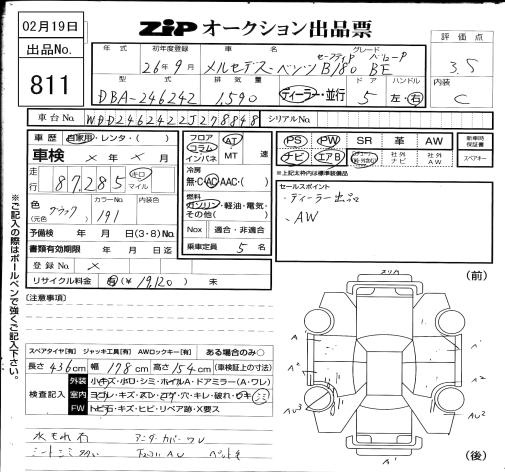 02月19日
ZIP オークション出品票
出品No.
811
評価点
3.5
内装
C
年式
初年度登録
車名
グレード
26年9月
メルセデス-ベンツ B180 BE
型式
排気量
ドア
ハンドル
DBA-246242
1,590
ディーラー・並行
5
左・右
車台No.
WDD2462422J278848
シリアルNo.
車歴
自家用・レンタ・( )
車検
×年×月
走行
87,285
キロ
マイル
色
(元色)
ブラック
カラーNo.
191
内装色
予備検 年 月 日(3・8)No.
書類有効期限 年 月 日迄
登録No.
×
リサイクル料金
有(¥19,120) 未
フロア
コラム
インパネ
AT
MT 速
冷房
無・C・AC・AAC・( )
燃料
ガソリン・軽油・電気・
その他( )
Nox
適合・非適合
乗車定員 5 名
PS PW SR 革 AW
ナビ エアB
社外ナビ
社外AW
新車時保証書
スペアキー
※上記太枠内は標準装備品
セールスポイント
・ディーラー出品
・AW
※ご記入の際はボールペンで強くご記入下さい。
(注意事項)
スペアタイヤ[有] ジャッキ工具[有] AWロックキー[有] ある場合のみ○
長さ 436cm 幅 178cm 高さ 154cm (車検証上の寸法)
検査記入
外装
小キズ・ホロ・シミ・ホイルA・ドアミラー(A・ワレ)
室内
ヨゴレ・キズ・スレ・コゲ・穴・キレ・破れ・ウキ・シミ
FW
トビ石・キズ・ヒビ・リペア跡・X要ス
(前)
(後)